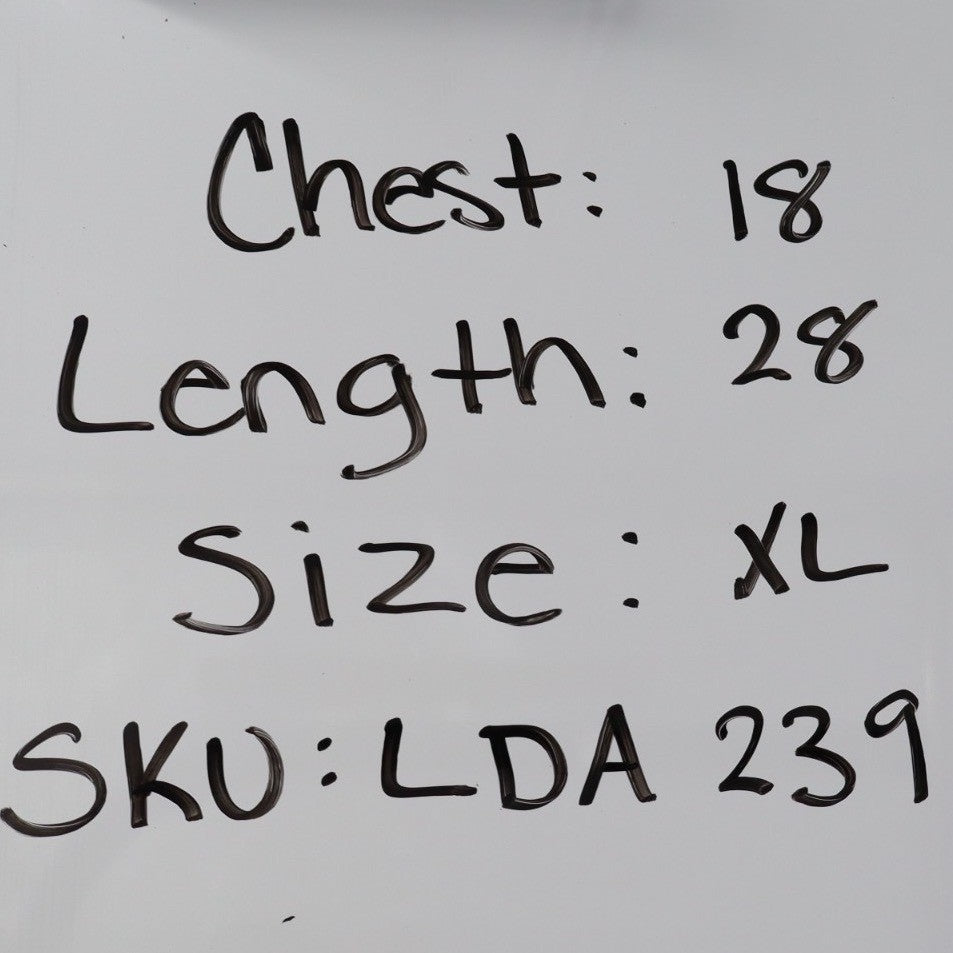 Chest: 18
Length: 28
Size: XL
SKU: LDA 239